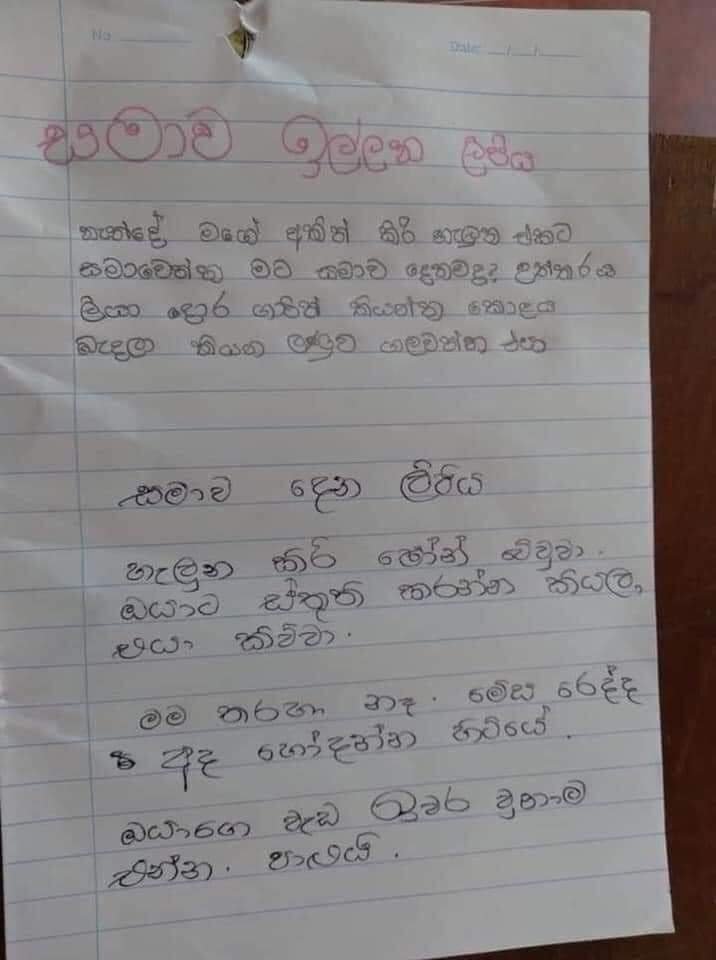 No
Date: __/__/__
සමාව ඉල්ලන ලිපිය
නැන්දේ මගේ අතින් කිරි හැලුන එකට
සමාවෙන්න මට සමාව දෙනවදද උත්තරය
ලියා දොර ගාවින් තියන්න කොළය
බැදලා තියන ලණුව ගලවන්න එපා
සමාව දෙන ලිපිය
හැලුන කිරි ෆෝන් වෙව්වා.
ඔයාට ස්තුති කරන්න කියලා,
එයා කිව්වා.
මම තරහා නෑ. මේස රෙද්ද
අද හෝදන්න හිටියේ.
ඔයාගෙ වැඩ ඉවර වුනාම
එන්න. පාළුයි.